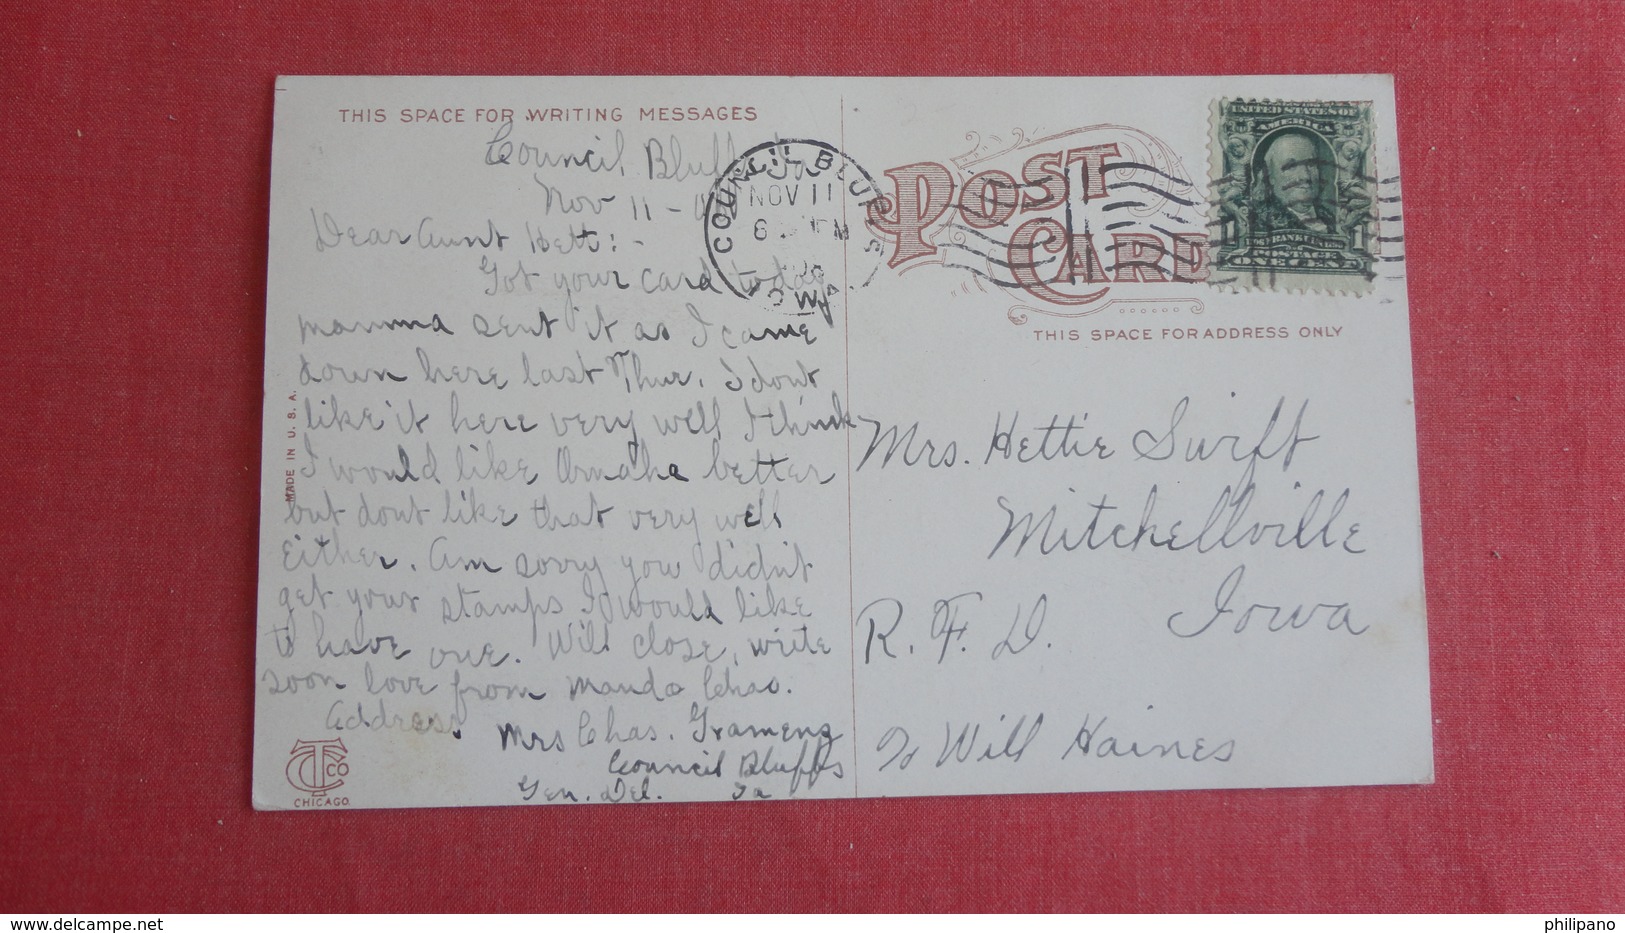 THIS SPACE FOR WRITING MESSAGES
Council Bluffs
Nov 11 -
Dear Aunt Hett: -
Got your card today
mamma sent it as I came
down here last Thur. I dont
like it here very well I think
I would like Omaha better
but dont like that very well
either. Am sorry you didn't
get your stamps I would like
to have one. Will close, write
soon love from Mauda Chas.
Address
Mrs Chas. Gramenz
Council Bluffs
Gen. Del. Ia
MADE IN U.S.A.
TC CO
CHICAGO
COUNCIL BLUFFS
NOV 11
6 PM
IOWA
POST CARD
UNITED STATES OF
AMERICA
FRANKLIN
POSTAGE
1 ONE CENT 1
THIS SPACE FOR ADDRESS ONLY
Mrs. Hettie Swift
Mitchellville
Iowa
R. F. D.
% Will Haines
philipano